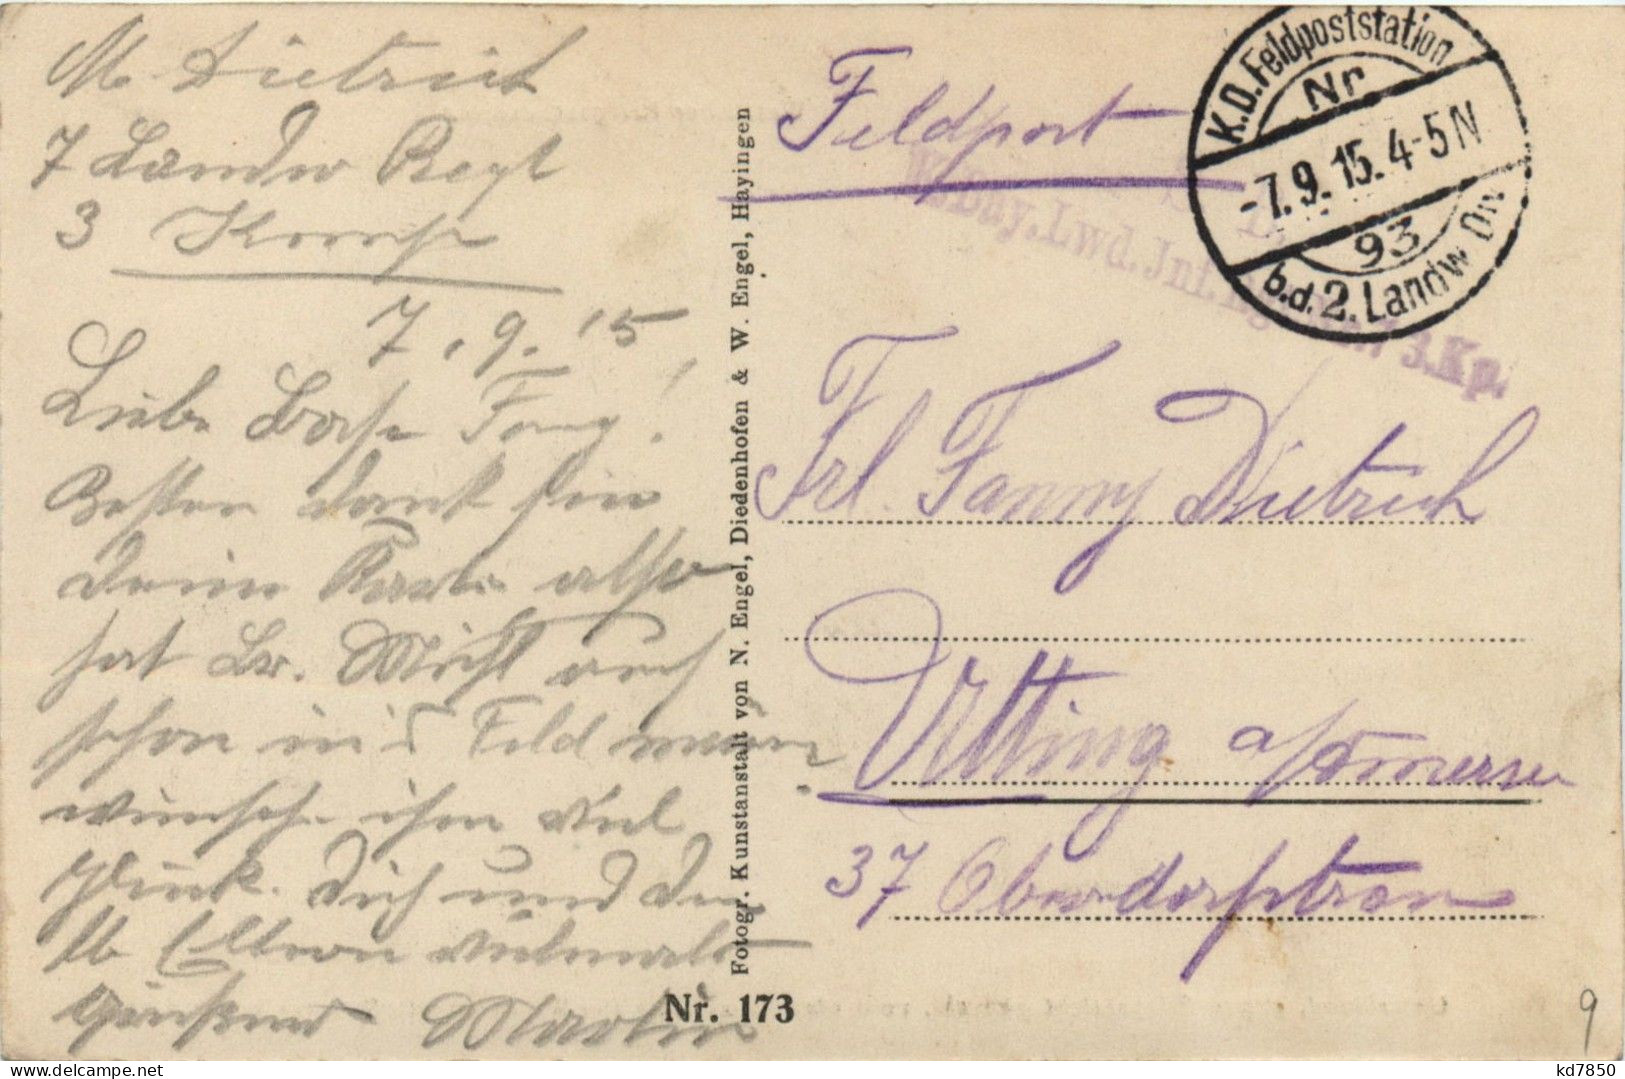 M Dietrich
7 Landw Regt
3 Komp
7.9.15
Liebe Base Fany!
Besten Dank für
deine Karte also
hat Lr. Michl auch
schon in's Feld
wünsche ihm viel
Glück. Dich und
lb Eltern vielmals
grüßend Martin
Fotogr. Kunstanstalt von N. Engel, Diedenhofen & W. Engel, Hayingen
Nr. 173
Feldpost
K.D. Feldpoststation
Nr
-7.9.15. 4-5N
93
b.d. 2. Landw Div.
K. Bay. Lwd. Inf. 3. Kp.
Frl. Fanny Dietrich
Utting a/Ammersee
37 Oberdorfstran
9
kd7850